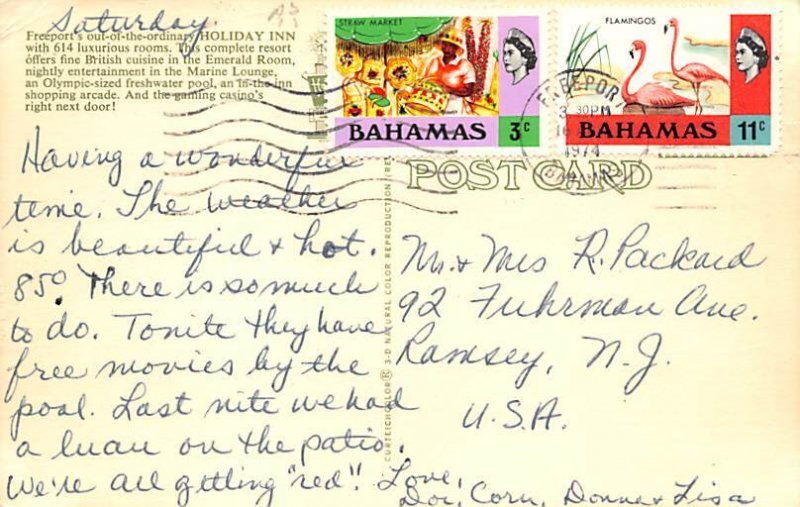 Saturday.
Freeport's out-of-the-ordinary HOLIDAY INN
with 614 luxurious rooms. This complete resort
offers fine British cuisine in the Emerald Room,
nightly entertainment in the Marine Lounge,
an Olympic-sized freshwater pool, an in-the-inn
shopping arcade. And the gaming casino's
right next door!
STRAW MARKET
BAHAMAS 3c
FLAMINGOS
BAHAMAS 11c
FREEPORT
3 30PM
16
1974
BAHAMAS
POST CARD
CURTEICHCOLOR® 3-D NATURAL COLOR REPRODUCTION
Having a wonderful
time. The weather
is beautiful & hot.
85° There is so much
to do. Tonite they have
free movies by the
pool. Last nite we had
a luau on the patio.
We're all getting "red"! Love,
Dor, Corn, Donna & Lisa
Mr. & Mrs R. Packard
92 Fuhrman Ave.
Ramsey, N.J.
U.S.A.